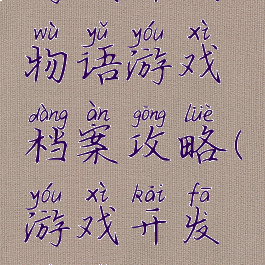 wù yǔ yóu xì
物语游戏
dàng àn gōng lüè
档案攻略(
yóu xì kāi fā
游戏开发